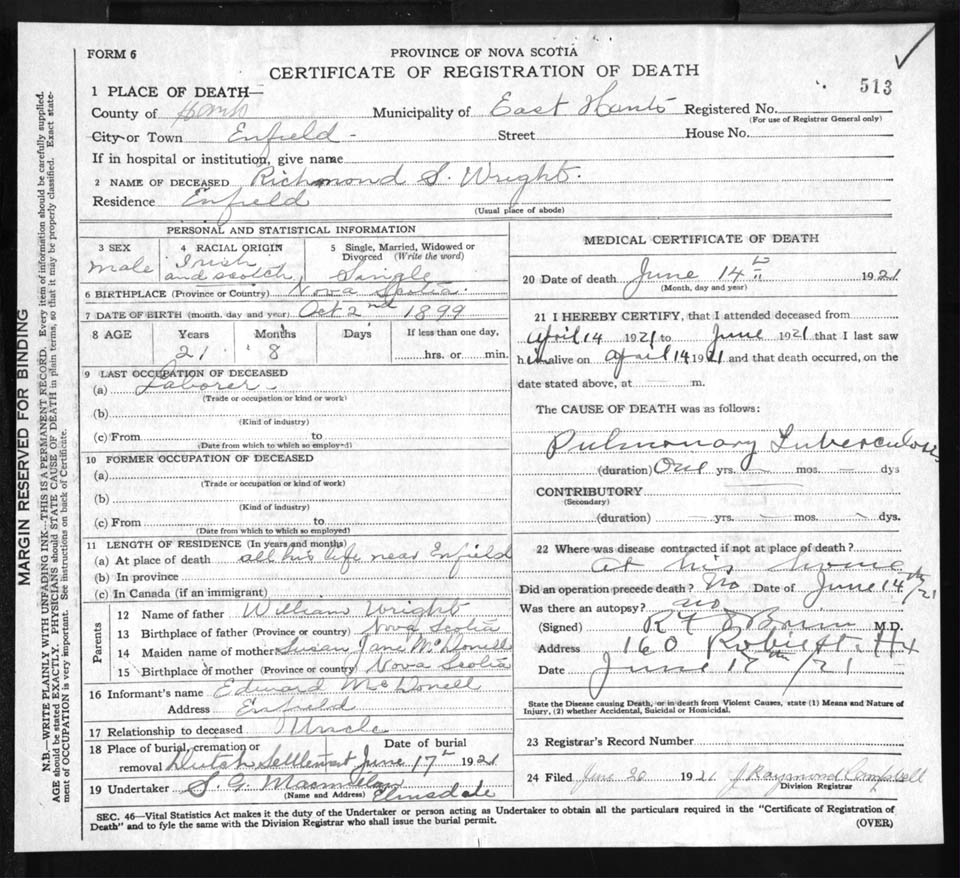 FORM 6
PROVINCE OF NOVA SCOTIA
CERTIFICATE OF REGISTRATION OF DEATH
513
1 PLACE OF DEATH—
County of Hants Municipality of East Hants Registered No.
(For use of Registrar General only)
City or Town Enfield - Street House No.
If in hospital or institution, give name
2 NAME OF DECEASED Richmond S. Wright.
Residence Enfield
(Usual place of abode)
PERSONAL AND STATISTICAL INFORMATION
3 SEX 4 RACIAL ORIGIN 5 Single, Married, Widowed or Divorced (Write the word)
male Irish and scotch, Single
6 BIRTHPLACE (Province or Country) Nova Scotia.
7 DATE OF BIRTH (month, day and year) Oct 2nd 1899
8 AGE Years Months Days If less than one day,
21 8 hrs. or min.
9 LAST OCCUPATION OF DECEASED
(a) Laborer
(Trade or occupation or kind or work)
(b)
(Kind of industry)
(c) From to
(Date from which to which so employed)
10 FORMER OCCUPATION OF DECEASED
(a)
(Trade or occupation or kind of work)
(b)
(Kind of industry)
(c) From to
(Date from which to which so employed)
11 LENGTH OF RESIDENCE (In years and months)
(a) At place of death all his life near Enfield
(b) In province
(c) In Canada (if an immigrant)
Parents
12 Name of father William Wright
13 Birthplace of father (Province or country) Nova Scotia
14 Maiden name of mother Susan Jane McDonell
15 Birthplace of mother (Province or country) Nova Scotia
16 Informant's name Edward McDonell
Address Enfield
17 Relationship to deceased Uncle
18 Place of burial, cremation or Date of burial
removal Dutch Settlement June 17th 1921
19 Undertaker S. G. Macmillan
(Name and Address) Elmsdale
MEDICAL CERTIFICATE OF DEATH
20 Date of death June 14th 1921
(Month, day and year)
21 I HEREBY CERTIFY, that I attended deceased from
April 14 1921 to June 1921 that I last saw
him alive on April 14 1921 and that death occurred, on the
date stated above, at — m.
The CAUSE OF DEATH was as follows:
Pulmonary Tuberculosis
(duration) One yrs. — mos. — dys
CONTRIBUTORY
(Secondary)
(duration) — yrs. — mos. — dys.
22 Where was disease contracted if not at place of death?
At his home
Did an operation precede death? No Date of June 14th/21
Was there an autopsy? no
(Signed) M.D.
Address 160 Robie St. Hx
Date June 17th /21
State the Disease causing Death, or in death from Violent Causes, state (1) Means and Nature of
Injury, (2) whether Accidental, Suicidal or Homicidal.
23 Registrar's Record Number
24 Filed June 20 1921 J Raymond Campbell
Division Registrar
SEC. 46—Vital Statistics Act makes it the duty of the Undertaker or person acting as Undertaker to obtain all the particulars required in the "Certificate of Registration of
Death" and to fyle the same with the Division Registrar who shall issue the burial permit.
(OVER)
MARGIN RESERVED FOR BINDING
N.B.—WRITE PLAINLY WITH UNFADING INK—THIS IS A PERMANENT RECORD. Every item of information should be carefully supplied.
AGE should be stated EXACTLY. PHYSICIANS should STATE CAUSE OF DEATH in plain terms, so that it may be properly classified. Exact state-
ment of OCCUPATION is very important. See instructions on back of Certificate.